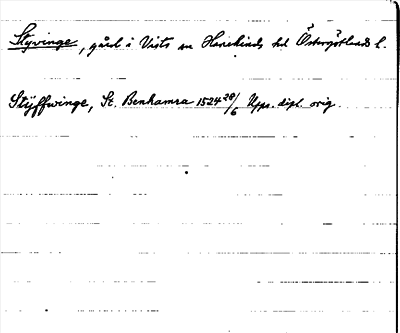 Styvinge, gård i Vists sn Hanekinds hd Östergötlands l.
Stÿffwinge, St. Benhamra 1524 28/6 Upps. dipl. orig.